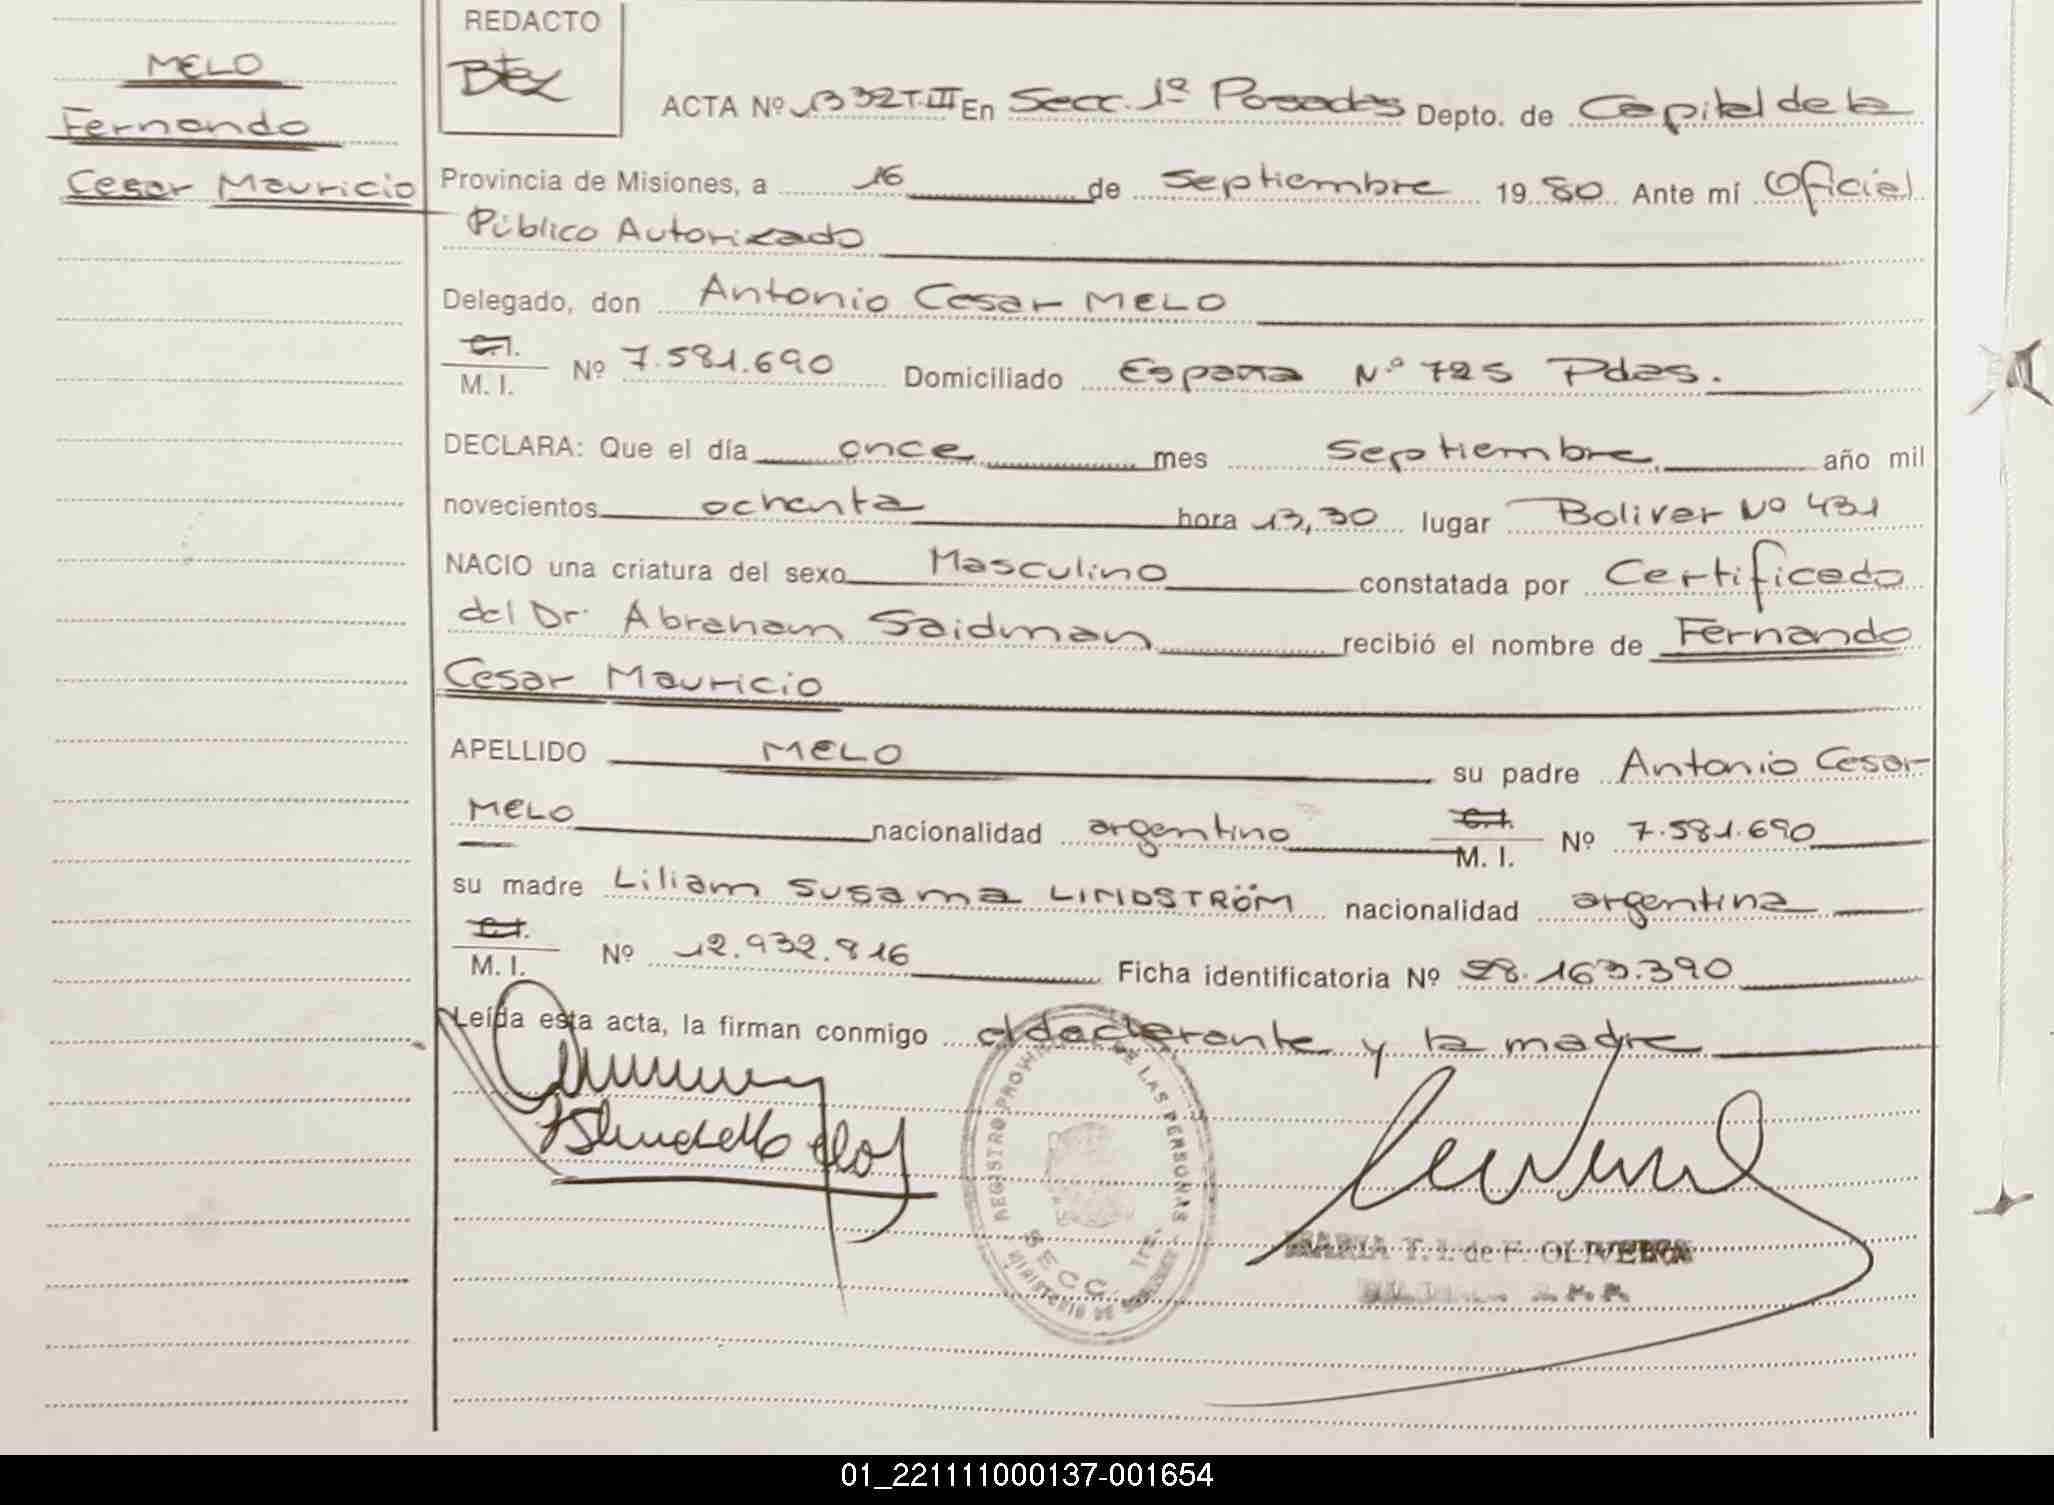 MELO
Fernando
Cesar Mauricio
REDACTO
ACTA Nº 1332 T.III En Secc. 1º Posadas Depto. de Capital de la
Provincia de Misiones, a 16 de Septiembre 1980 Ante mí Oficial
Público Autorizado
Delegado, don Antonio Cesar MELO
C.I.
M. I. Nº 7.581.690 Domiciliado España Nº 725 Pdas.
DECLARA: Que el día once mes Septiembre año mil
novecientos ochenta hora 13,30 lugar Bolivar Nº 431
NACIO una criatura del sexo Masculino constatada por Certificado
del Dr. Abraham Saidman recibió el nombre de Fernando
Cesar Mauricio
APELLIDO MELO su padre Antonio Cesar
MELO nacionalidad argentino C.I. M. I. Nº 7.581.690
su madre Liliam Susana LINDSTRÖM nacionalidad argentina
C.I.
M. I. Nº 12.932.816 Ficha identificatoria Nº 28.163.390
Leída esta acta, la firman conmigo el declarante y la madre
REGISTRO PROVINCIAL DE LAS PERSONAS
SECC. 1ra.
MINISTERIO DE
MARIA T. I. de F. OLIVEIRA
01_221111000137-001654